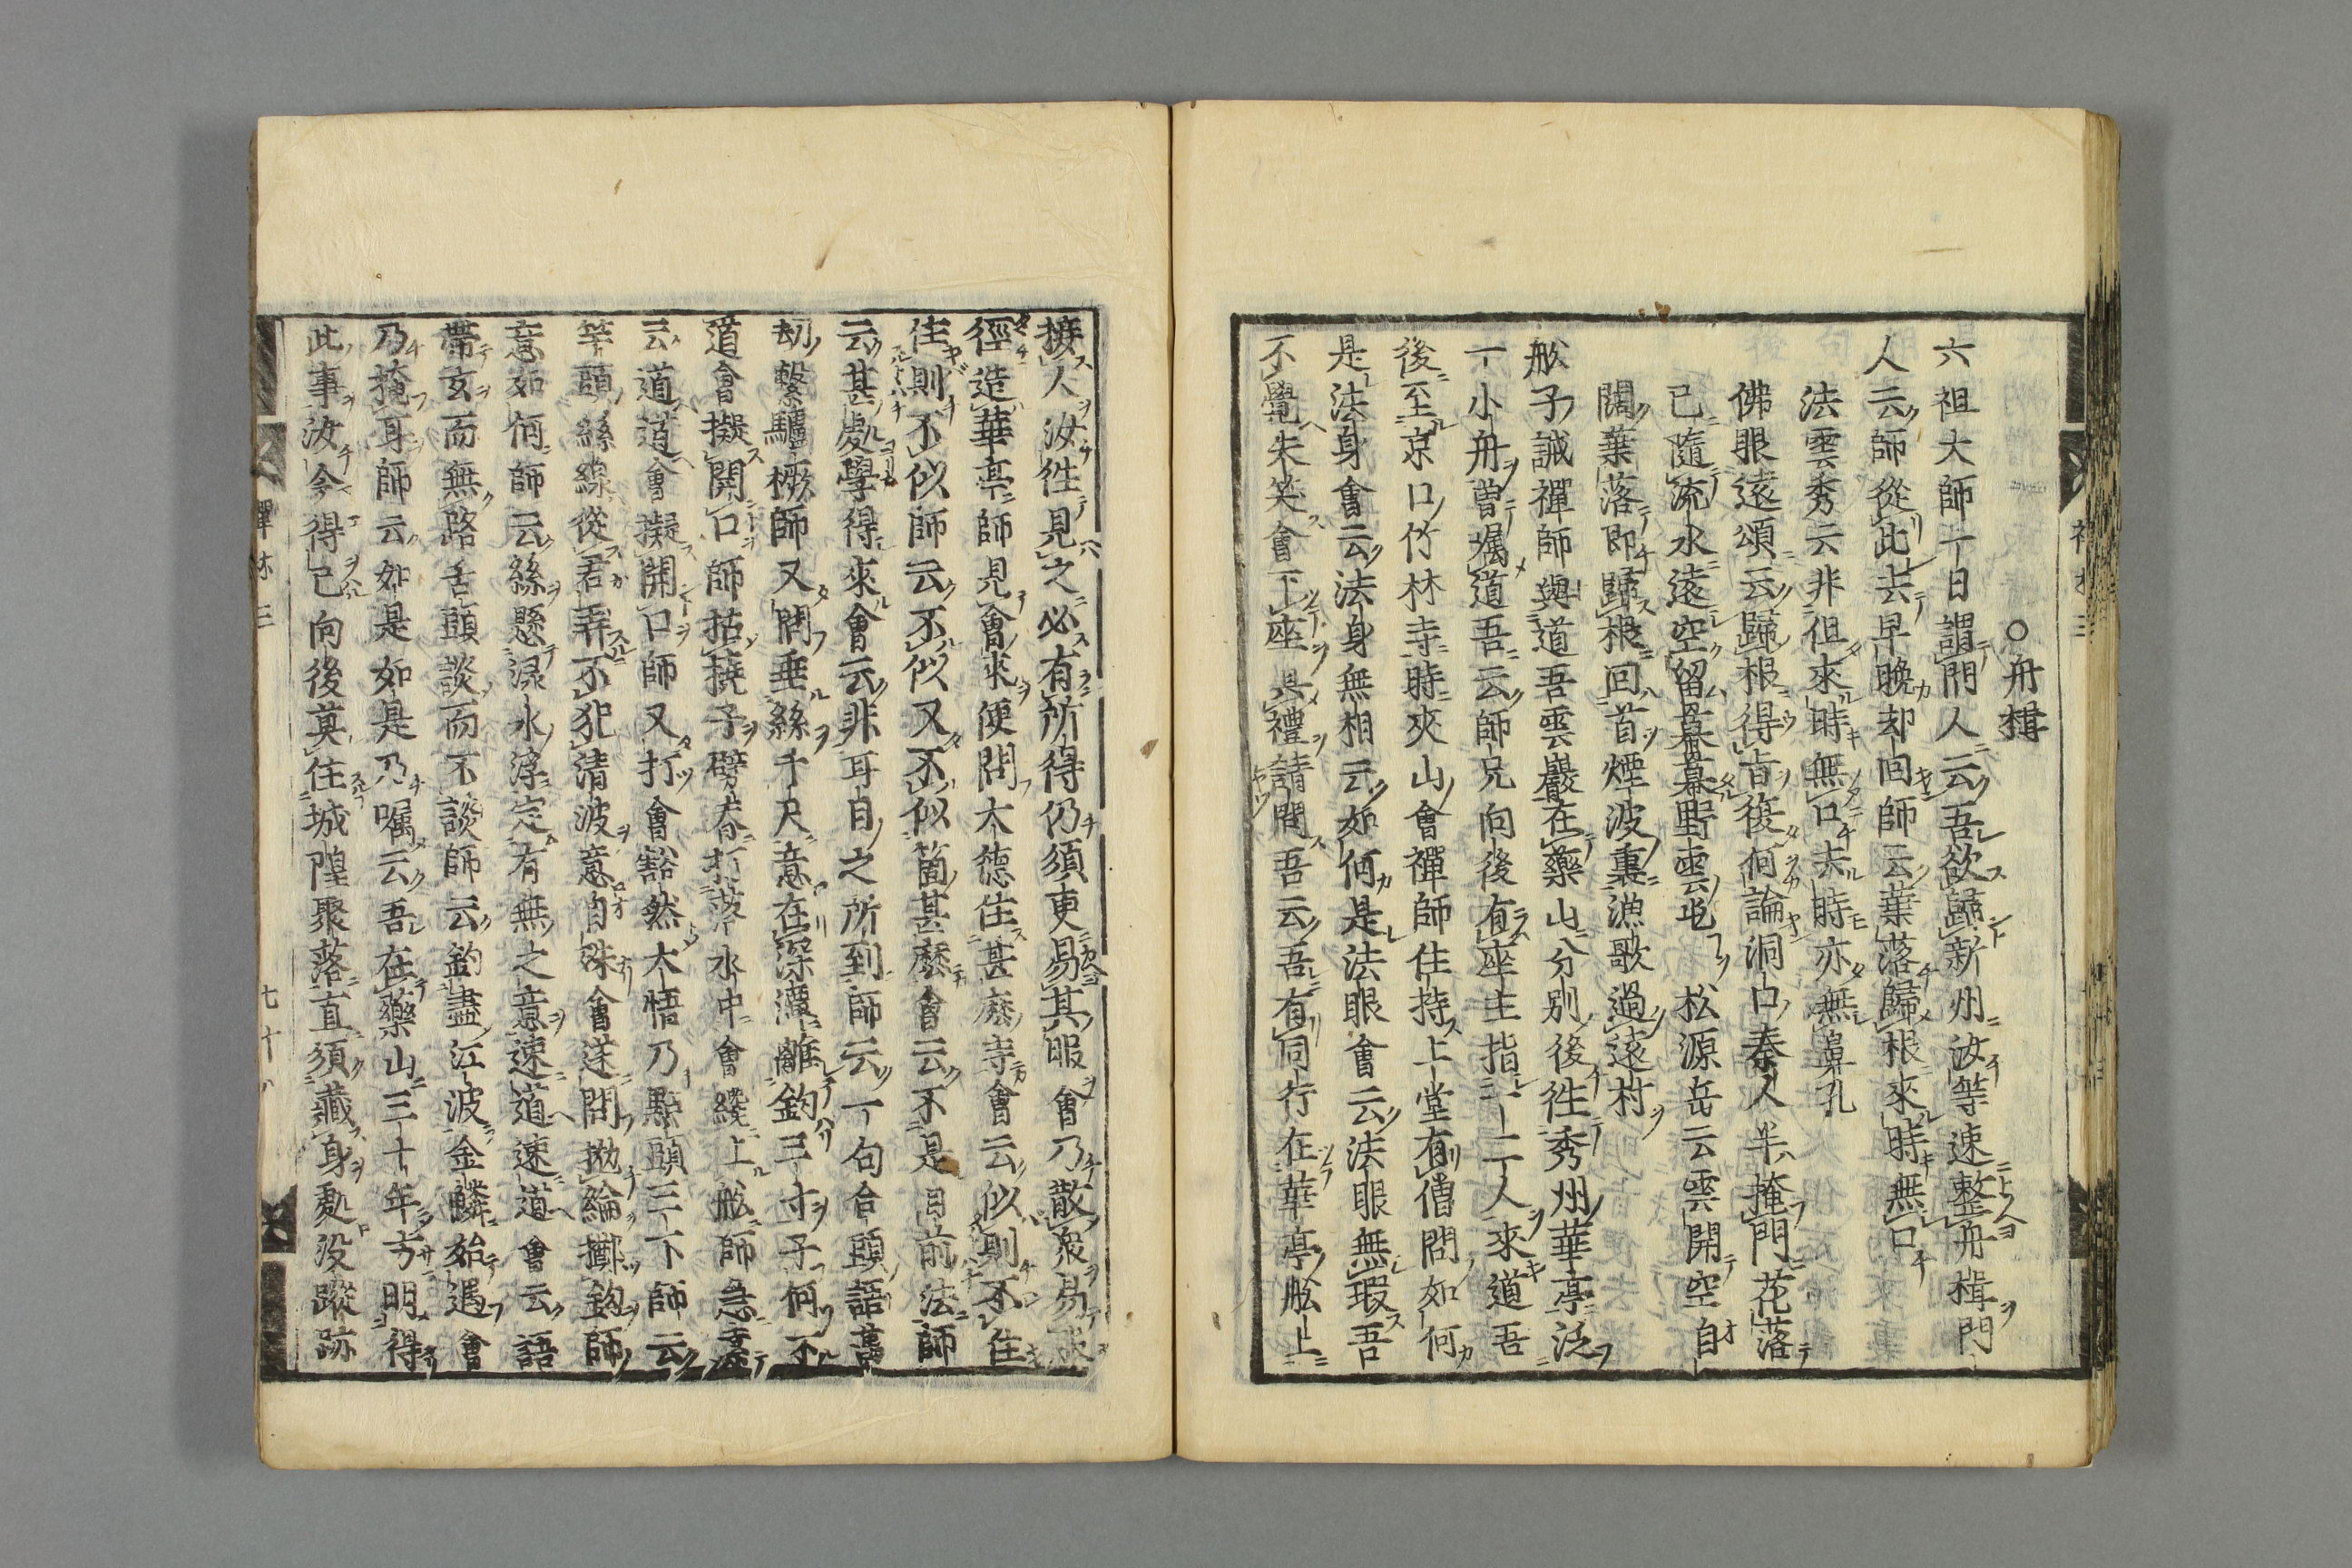 ○舟楫
六祖大師一日謂門人云吾欲歸新州汝等速整舟楫門
人云師從此去早晩却回師云葉落歸根來時無口
法雲秀云非但來時無口去時亦無鼻孔
佛眼遠頌云歸根得旨復何論洞口秦人半掩門花落
已隨流水遠空留暮暮野雲屯 松源岳云雲開空自
闊葉落即歸根回首煙波裏漁歌過遠村
舩子誠禪師與道吾雲巖在藥山分別後徃秀州華亭泛
一小舟曽嘱道吾云師兄向後有座主指一二人來道吾
後至京口竹林寺時夾山會禪師住持上堂有僧問如何
是法身會云法身無相云如何是法眼會云法眼無瑕吾
不覺失笑會下座具禮請問吾云吾有同行在華亭舩上
接人汝徃見之必有所得仍須更易其暇會乃散衆易
徑造華亭師見會來便問大德住甚麽寺會云似則不住
住則不似師云不似又不似箇甚麽會云不是目前法師
云甚處學得來會云非耳目之所到師云一句合頭語萬
劫繫驢橛師又問垂絲千尺意在深潭離鈎三寸子何不
道會擬開口師拈撓子劈脊打落水中會纔上舩師急索
云道道會擬開口師又打會豁然大悟乃點頭三下師云
竿頭絲線從君弄不犯清波意自殊會遂問抛綸擲鈎師
意如何師云絲懸渌水浮定有無之意速道速道會云語
帶玄而無路舌頭談而不談師云釣盡江波金鱗始遇會
乃掩耳師云如是如是乃嘱云吾在藥山三十年方明得
此事汝今得已向後莫住城隍聚落直須藏身處没蹤跡
禪林三
七十八